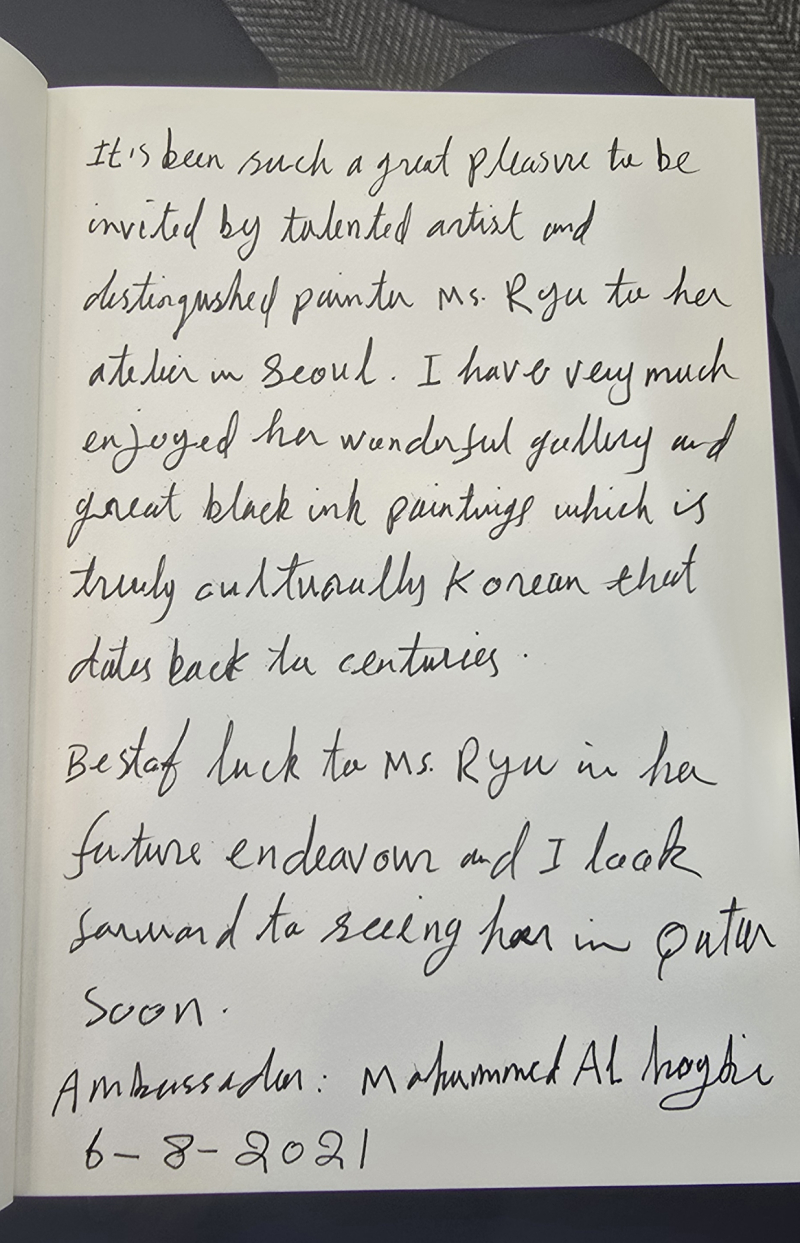 It's been such a great pleasure to be
invited by talented artist and
distingushed painter Ms. Ryu to her
atelier in Seoul. I have very much
enjoyed her wonderful gallery and
great black ink paintings which is
truly culturally Korean that
dates back to centuries.
Best of luck to Ms. Ryu in her
future endeavour and I look
forward to seeing her in Qatar
soon.
Ambassador: Mohammed Al
6-8-2021